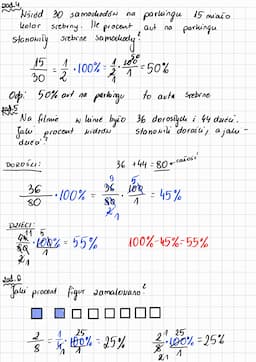 zad.4
Wśród 30 samochodów na parkingu 15 miało
kolor srebrny. Ile procent aut na parkingu
stanowiły srebrne samochody?
15/30 = 1/2 · 100% = 1/2 · 100/1 50 1 = 50%
Odp: 50% aut na parkingu to auta srebrne
zad.5
Na filmie w kinie było 36 dorosłych i 44 dzieci.
Jaki procent widzów stanowili dorośli, a jaki -
dzieci?
DOROŚLI: 36 + 44 = 80 ← całość
36/80 · 100% = 36/80 · 100/1 9 5 2 1 = 45%
DZIECI:
44/80 · 100% 11 5 2 1 = 55% 100% - 45% = 55%
zad.6
Jaki procent figur zamalowano?
2/8 = 1/4 · 100% 25 1 = 25% 2/8 · 100% 1 25 2 1 = 25%